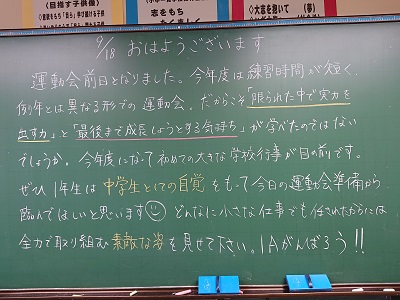 《目指す子供像》
志をもち
◇大志を抱いて (夢)
9/18 おはようございます
運動会前日となりました。今年度は練習時間が短く、
例年とは異なる形での運動会。だからこそ「限られた中で実力を
出す力」と「最後まで成長しようとする気持ち」が学べたのではない
でしょうか。今年度になって初めての大きな学校行事が目の前です。
ぜひ1年生は中学生としての自覚をもって今日の運動会準備から
臨んでほしいと思います☺ どんなに小さな仕事でも任されたからには
全力で取り組む素敵な姿を見せて下さい。1Aがんばろう!!